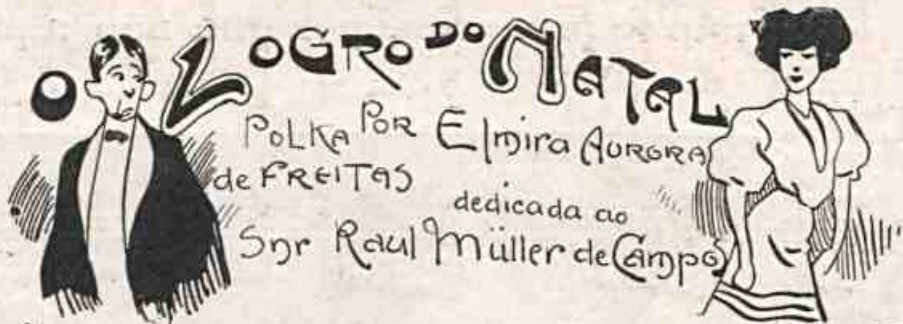 O LOGRO DO NATAL
POLKA POR Elmira AURORA
de FREITAS
dedicada ao
Snr Raul Müller de Campos